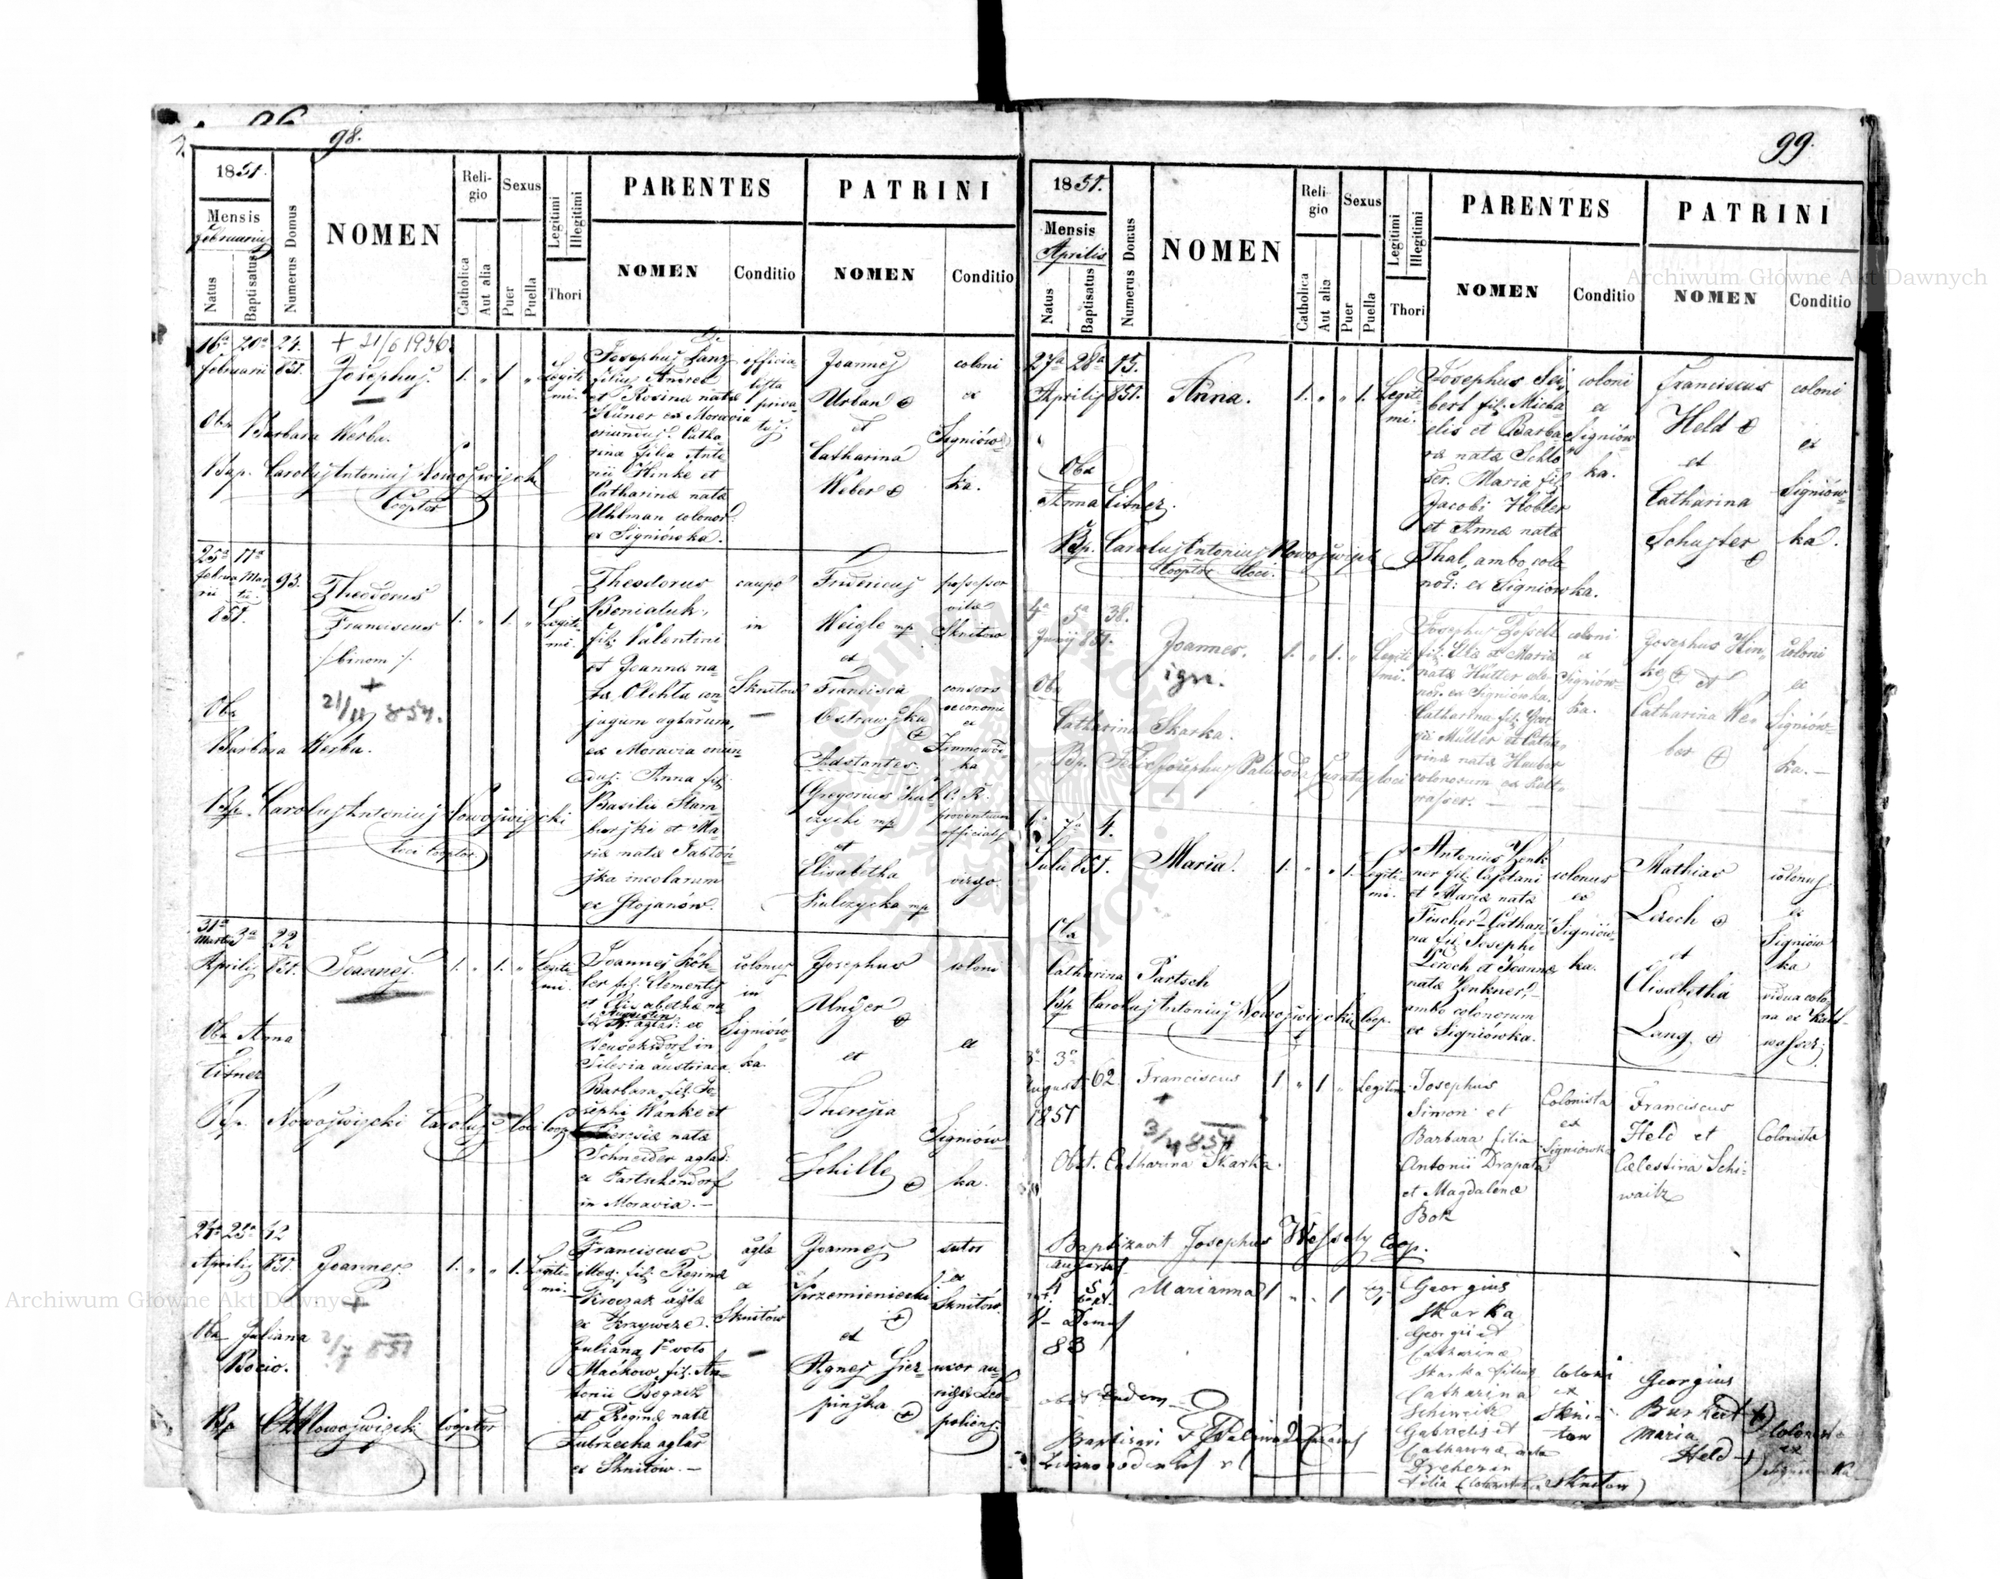 98.
1851.
Mensis
Februarius
Natus
Baptisatus
Numerus Domus
NOMEN
Reli-
gio
Catholica
Aut alia
Sexus
Puer
Puella
Legitimi
Illegitimi
Thori
PARENTES
NOMEN
Conditio
PATRINI
NOMEN
Conditio
16a 20a 24.
Februarii 851.
+ 21/6 1936
Josephus.
1. " 1 "
Legiti
mi.
Josephus Lanz
filius Andreæ
et Rosinæ natæ
ex Moravia
oriundus. Catha-
rina filia Anto-
nii Hinke et
Catharinæ natæ
Uhlman colonor:
ex Signiówka.
officia-
lista
priva-
tus.
Joannes
Urban
et
Catharina
Weber
coloni
ex
Signiów-
ka.
Oba
Barbara Werbu.
Bap. Carolus Antonius Nowoswijcki
Cooptor
25a 11a
Februa Mar-
rii tii.
851.
93.
Theodorus
Franciscus
/:binom:/.
+
21/11 854.
1. " 1. "
Legiti-
mi.
Theodorus
Beniatuk,
fil: Valentini
et Joannæ na-
tæ Olehla con-
jugum aglarum,
ex Moravia oriun-
dus. Anna fil:
Basilii Stam-
burski et Ma-
riæ natæ Jabłon-
ska incolarum
ex Stojanow.
caupo
in
Sknitow
—
Fridericus
Weigle mp
et
Francisca
Ostrawska
Adstantes.
Gregorius Kul-
czycki mp
et
Elisabetha
Kulczycka mp
possessor
Sknitow
consors
oeconomi
ex
Zimnowód-
ka
C. R.
proventuum
officialis
virgo.
Oba
Barbara Werbu.
Bp. Carolus Antonius Nowoswijcki
loci Cooptor
31a
Martii 3a 22
Aprilis 851.
Joannes.
1. " 1. "
Legiti
mi.
Joannes Köh-
ler fil: Clementis
et Elisabethæ na-
Augustin
aglar: ex
in
Silesia austriaca.
Barbara, fil: Jo-
sephi Wanke et
Theresiæ natæ
Schneider aglar:
ex Partschendorf
in Moravia. —
colonus
in
Signiów-
ka.
Josephus
Unger
et
Theresia
Schille
coloni
ex
Signiów-
ka.
Oba Anna
Eisner
Bp. Nowoswijcki Carolus loci Coop:
24a 25a 42
Aprilis 851.
Joannes.
+
2/7 851
1. " " 1.
Legiti-
mi.
Franciscus
illeg. fil: Reginæ
Kroczak aglæ
ex Krzywcze.
Juliana 1o voto
Maćkow, fil: An-
tonii Bogacz
et Reginæ natæ
Zubrzecka aglar
ex Sknitów. —
agla
ex
Sknitów
—
Joannes
Krzemieniecki
et
Agnes
sutor
ex
Sknitów.
uxor au-
rigæ Leo-
poliens:
Oba Juliana
Bocio.
Bp CA Nowoswijcki Cooptor
99.
1851.
Mensis
Aprilis
Natus
Baptisatus
Numerus Domus
NOMEN
Reli-
gio
Catholica
Aut alia
Sexus
Puer
Puella
Legitimi
Illegitimi
Thori
PARENTES
NOMEN
Conditio
PATRINI
NOMEN
Conditio
27a 28a 15.
Aprilis 851.
Anna.
1. " " 1.
Legiti-
mi.
Josephus Sei-
bert fil: Micha-
elis et Barba-
ræ natæ Schlo-
ser. Maria fil:
Jacobi Hobler
et Annæ natæ
Thal, ambo colo-
nor: ex Signiowka.
coloni
ex
Signiów-
ka.
Franciscus
Held
et
Catharina
Schuster
coloni
ex
Signiów-
ka.
Oba
Anna Eisner.
Bp. Carolus Antonius Nowoswijcki
Cooptor loci.
4a 5a 38.
Junij 851.
Joannes.
ign.
1. " 1. "
Legiti
mi.
Josephus
fil: Eliæ et Mariæ
natæ Hutter colo-
nor: ex Signiówka.
Catharina fil: Geor-
gii Müller et Catha-
rinæ natæ Hauber
colonorum ex Kalt-
wasser. —
coloni
ex
Signiów-
ka.
Josephus Hin-
ke et
Catharina We-
ber
coloni
ex
Signiów-
ka. —
Oba
Catharina Skarka.
Bp. Felix Josephus Curatus loci
6a 7a 4.
Julii 851.
Maria.
1. " " 1.
Legiti-
mi.
Antonius Zenk-
ner fil: Cajetani
et Mariæ natæ
Fischer. Cathari-
na fil: Josephi
Lerech et Joannæ
natæ Zenkner, —
ambo colonorum
ex Signiówka.
colonus
ex
Signiów-
ka.
Mathias
Lerech
et
Elisabetha
Lang.
colonus
ex
Signiów
ka
vidua colo-
na ex Kalt-
wasser.
Oba
Catharina Partsch
Bp Carolus Antonius Nowoswijcki Coop.
3a 3a
August: 62
1851
Franciscus
+
3/4 854
1 " 1 "
Legitim:
Josephus
Simon et
Barbara filia
Antonii Drapata
et Magdalenæ
Bok
Colonista
ex
Signiowka
Franciscus
Held et
Cælestina Schi-
waitz
Colonista
Obst. Catharina Skarka.
Baptizavit Josephus Wessely Coop.
Augusti
4 5
Sept.
Domus
83
Marianna
1 " " 1
leg.
Georgius
Skarka
Georgii et
Catharinæ
Skarka filius
Catharina
Schiweitz
Gabrielis et
Catharinæ natæ
Dreherin
filia
Coloni
ex
Skni-
tow
Georgius
Burkert
Maria
Held
Colonista
ex
Signiowka
Obst eadem
Baptisavi
Archiwum Główne Akt Dawnych
Archiwum Główne Akt Dawnych